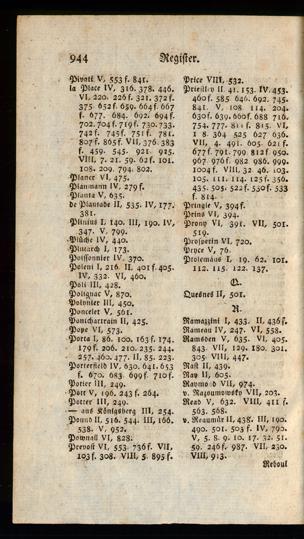 944 Register.
Pivati V, 553 f. 841.
la Place IV, 316. 378. 446.
VI, 220. 226 f. 321. 372 f.
375. 652 f. 659. 664 f. 667
f. 677. 684. 692. 694 f.
702. 704 f. 719 f. 730. 733.
742 f. 745 f. 751 f. 781.
807 f. 865 f. VII, 376. 383
f. 459. 545. 921. 925.
VIII, 7. 21. 59. 62 f. 101.
108. 209. 794. 802.
Planer VI, 475.
Planmann IV, 279 f.
Planta V, 635.
de Plantade II, 535. IV, 177.
381.
Plinius I, 140. III, 190. IV,
347. V, 799.
Plüche IV, 440.
Plutarch I, 173.
Poissonnier IV, 370.
Poleni I, 216. II, 401 f. 405.
IV, 332. VI, 460.
Poli III, 428.
Polignac V, 870.
Polynier III, 450.
Poncelet V, 561.
Pontchartrain II, 425.
Pope VI, 573.
Porta I, 86. 100. 163 f. 174.
179 f. 206. 210. 235. 244.
257. 460. 477. II, 85. 223.
Porterfield IV, 630. 641. 653
f. 670. 683. 699 f. 710 f.
Potier III, 249.
Pott V, 196. 243 f. 264.
Potter III, 249.
— aus Königsberg III, 254.
Pound II, 516. 544. III, 166.
538. V, 952.
Pownall VI, 828.
Prevost VI, 553. 736 f. VII,
103 f. 308. VIII, 5. 895 f.
Price VIII, 532.
Priestley II, 41. 153. IV, 453.
460 f. 585. 646. 692. 745.
841. V, 108. 114. 204.
630 f. 639. 660 f. 688. 716.
754. 777. 811 f. 815. VI,
1. 8. 364. 525. 627. 636.
VII, 4. 491. 605. 621 f.
677 f. 791. 799. 812 f. 950.
967. 976 f. 982. 986. 999.
1004 f. VIII, 32. 46. 103.
105. 111. 114. 125 f. 356.
435. 505. 522 f. 530 f. 533
f. 814.
Pringle V, 394 f.
Prins VI, 394.
Prony VI, 391. VII, 501.
519.
Prosperin VI, 720.
Pryce V, 76.
Ptolemäus I, 19. 62. 101.
112. 115. 122. 137.
Q.
Quesnes II, 501.
R.
Ramazzini I, 433. II, 436 f.
Rameau IV, 247. VI, 558.
Ramsden V, 635. VI, 405.
843. VII, 129. 180. 301.
305. VIII, 447.
Rast II, 439.
Ray II, 605.
Raymond VII, 974.
v. Razoumowsky VII, 203.
Read V, 632. VIII, 411 f.
563. 568.
v. Reaumür II, 438. III, 190.
490. 501. 503 f. IV, 790.
V, 5. 8. 9. 10. 17. 32. 51.
59. 246 f. 987. VII, 230.
VIII, 913.
Reboul